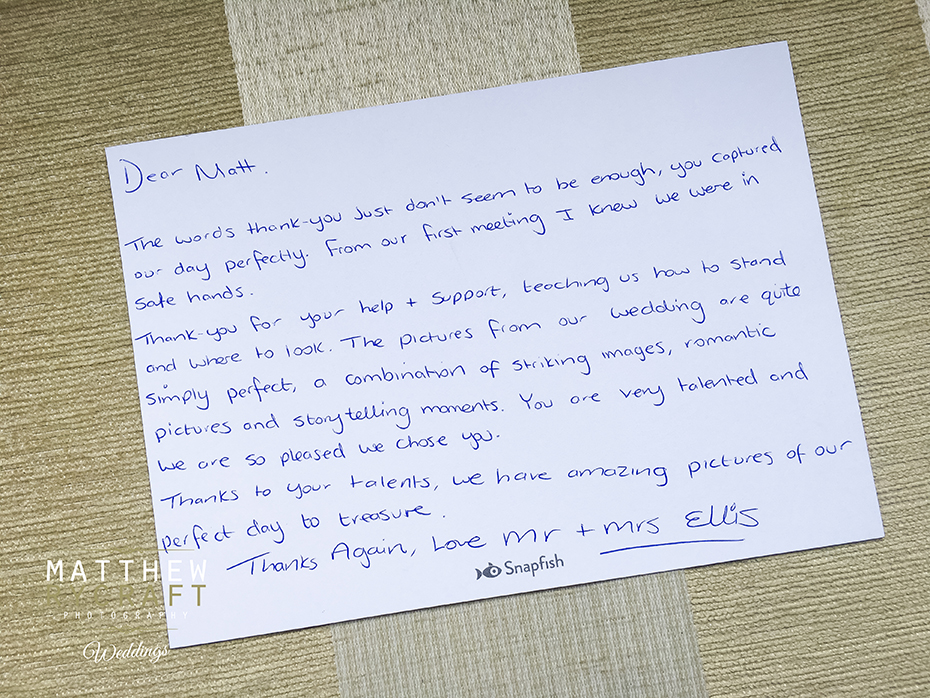 Dear Matt.
The words thank-you just don't seem to be enough, you captured
our day perfectly. From our first meeting I knew we were in
safe hands.
Thank-you for your help + support, teaching us how to stand
and where to look. The pictures from our wedding are quite
simply perfect, a combination of striking images, romantic
pictures and storytelling moments. You are very talented and
we are so pleased we chose you.
Thanks to your talents, we have amazing pictures of our
perfect day to treasure.
Thanks Again, Love Mr + Mrs Ellis
Snapfish
MATTHEW
PHOTOGRAPHY
Weddings